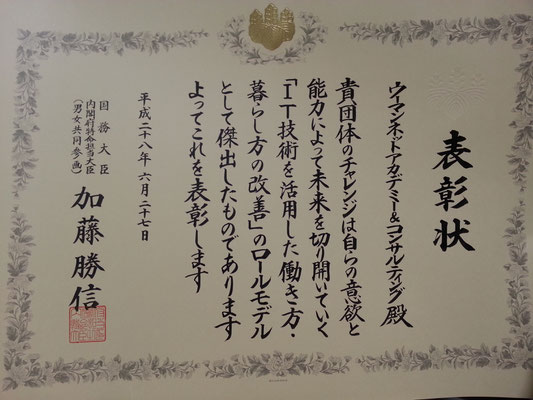 表彰状
ウーマンネットアカデミー&コンサルティング殿
貴団体のチャレンジは自らの意欲と
能力によって未来を切り開いていく
「IT技術を活用した働き方・
暮らし方の改善」のロールモデル
として傑出したものであります
よってこれを表彰します
平成二十八年六月二十七日
国務大臣
内閣府特命担当大臣
(男女共同参画)
加藤勝信